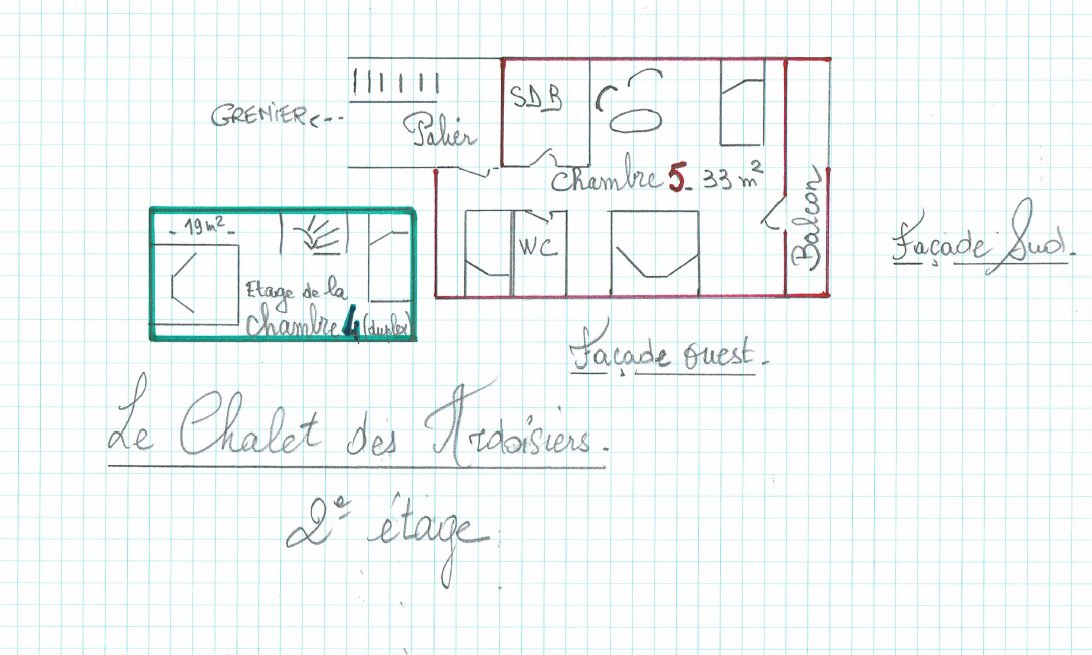 GRENIER <--
Palier
SDB
Chambre 5 - 33 m²
Balcon
WC
- 19 m² -
Etage de la
Chambre 4 (duplex)
Façade Sud.
Façade Ouest.
Le Chalet des Ardoisiers.
2e étage